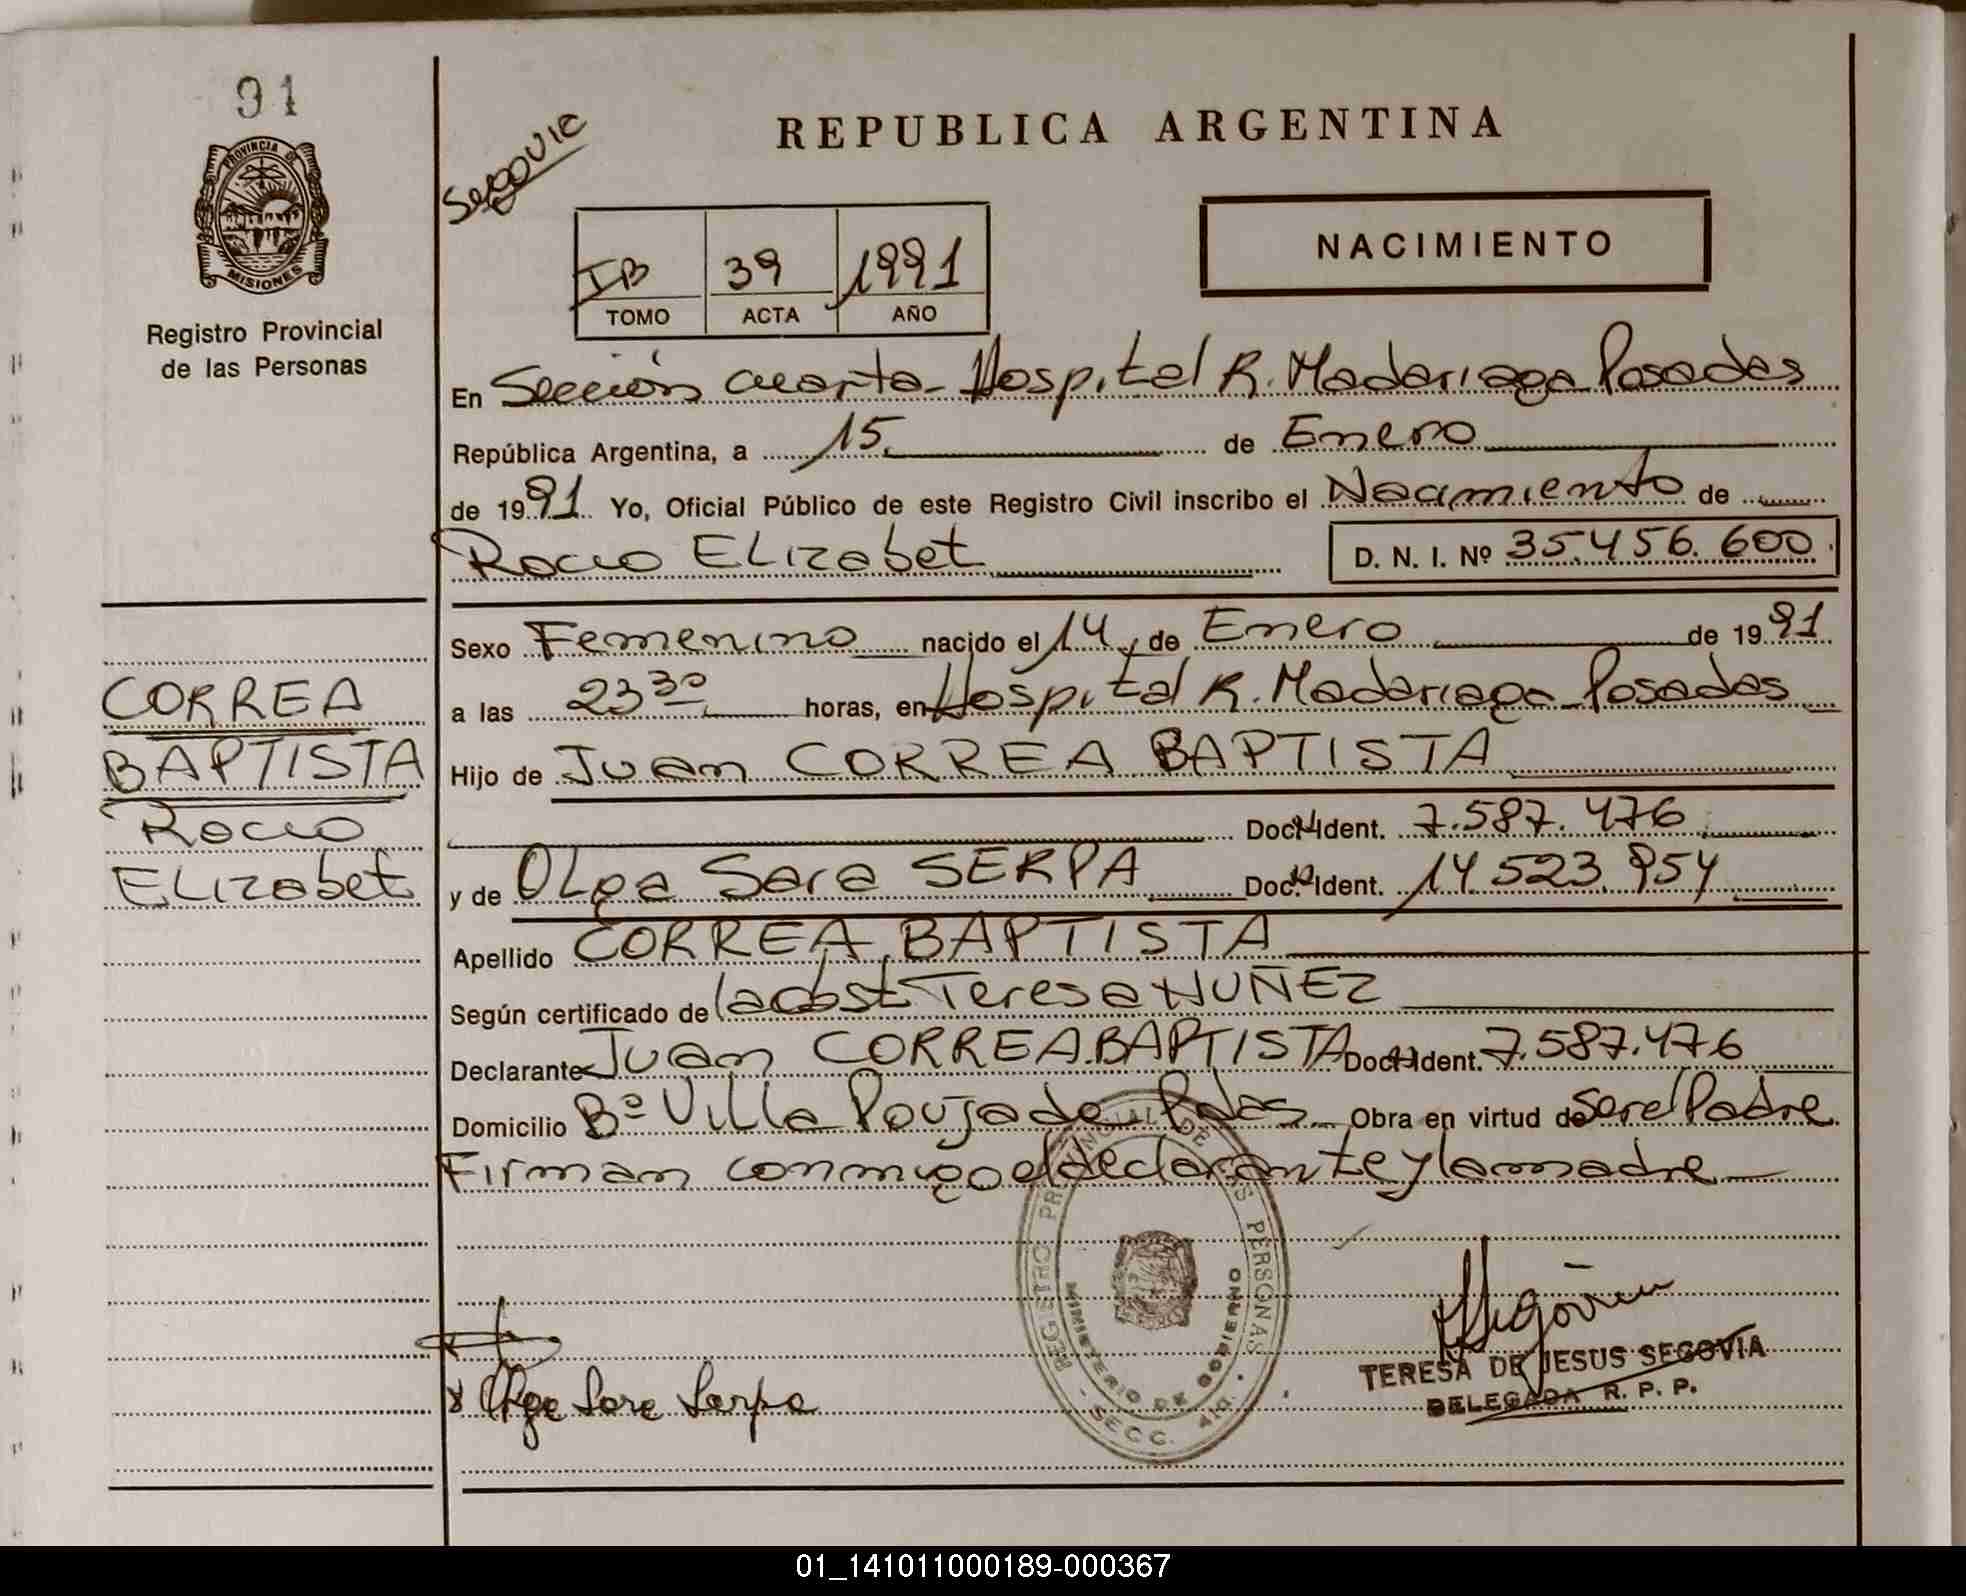 91
PROVINCIA DE
MISIONES
Registro Provincial
de las Personas
CORREA
BAPTISTA
Rocio
ELizabet
REPUBLICA ARGENTINA
NACIMIENTO
39 1991
TOMO ACTA AÑO
En Sección cuarta - Hospital R. Madariaga Posadas
República Argentina, a 15 de Enero
de 1991 Yo, Oficial Público de este Registro Civil inscribo el Nacimiento de
Rocio ELizabet D. N. I. Nº 35.456.600
Sexo Femenino nacido el 14 de Enero de 1991
a las 23 30 horas, en Hospital R. Madariaga - Posadas
Hijo de Juan CORREA BAPTISTA
Doc. Ident. 7.587.476
y de OLga Sara SERPA Doc. Ident. 14.523.954
Apellido CORREA BAPTISTA
Según certificado de la obst. Teresa NUÑEZ
Declarante Juan CORREA BAPTISTA Doc. Ident. 7.587.476
Domicilio Bº Villa Poujade Pdas. Obra en virtud de ser el Padre
Firman conmigo el declarante y la madre
REGISTRO PROVINCIAL DE LAS PERSONAS
MINISTERIO DE GOBIERNO
SECC. 4ta.
x Olga Sara Serpa
TERESA DE JESUS SEGOVIA
DELEGADA R. P. P.
01_141011000189-000367